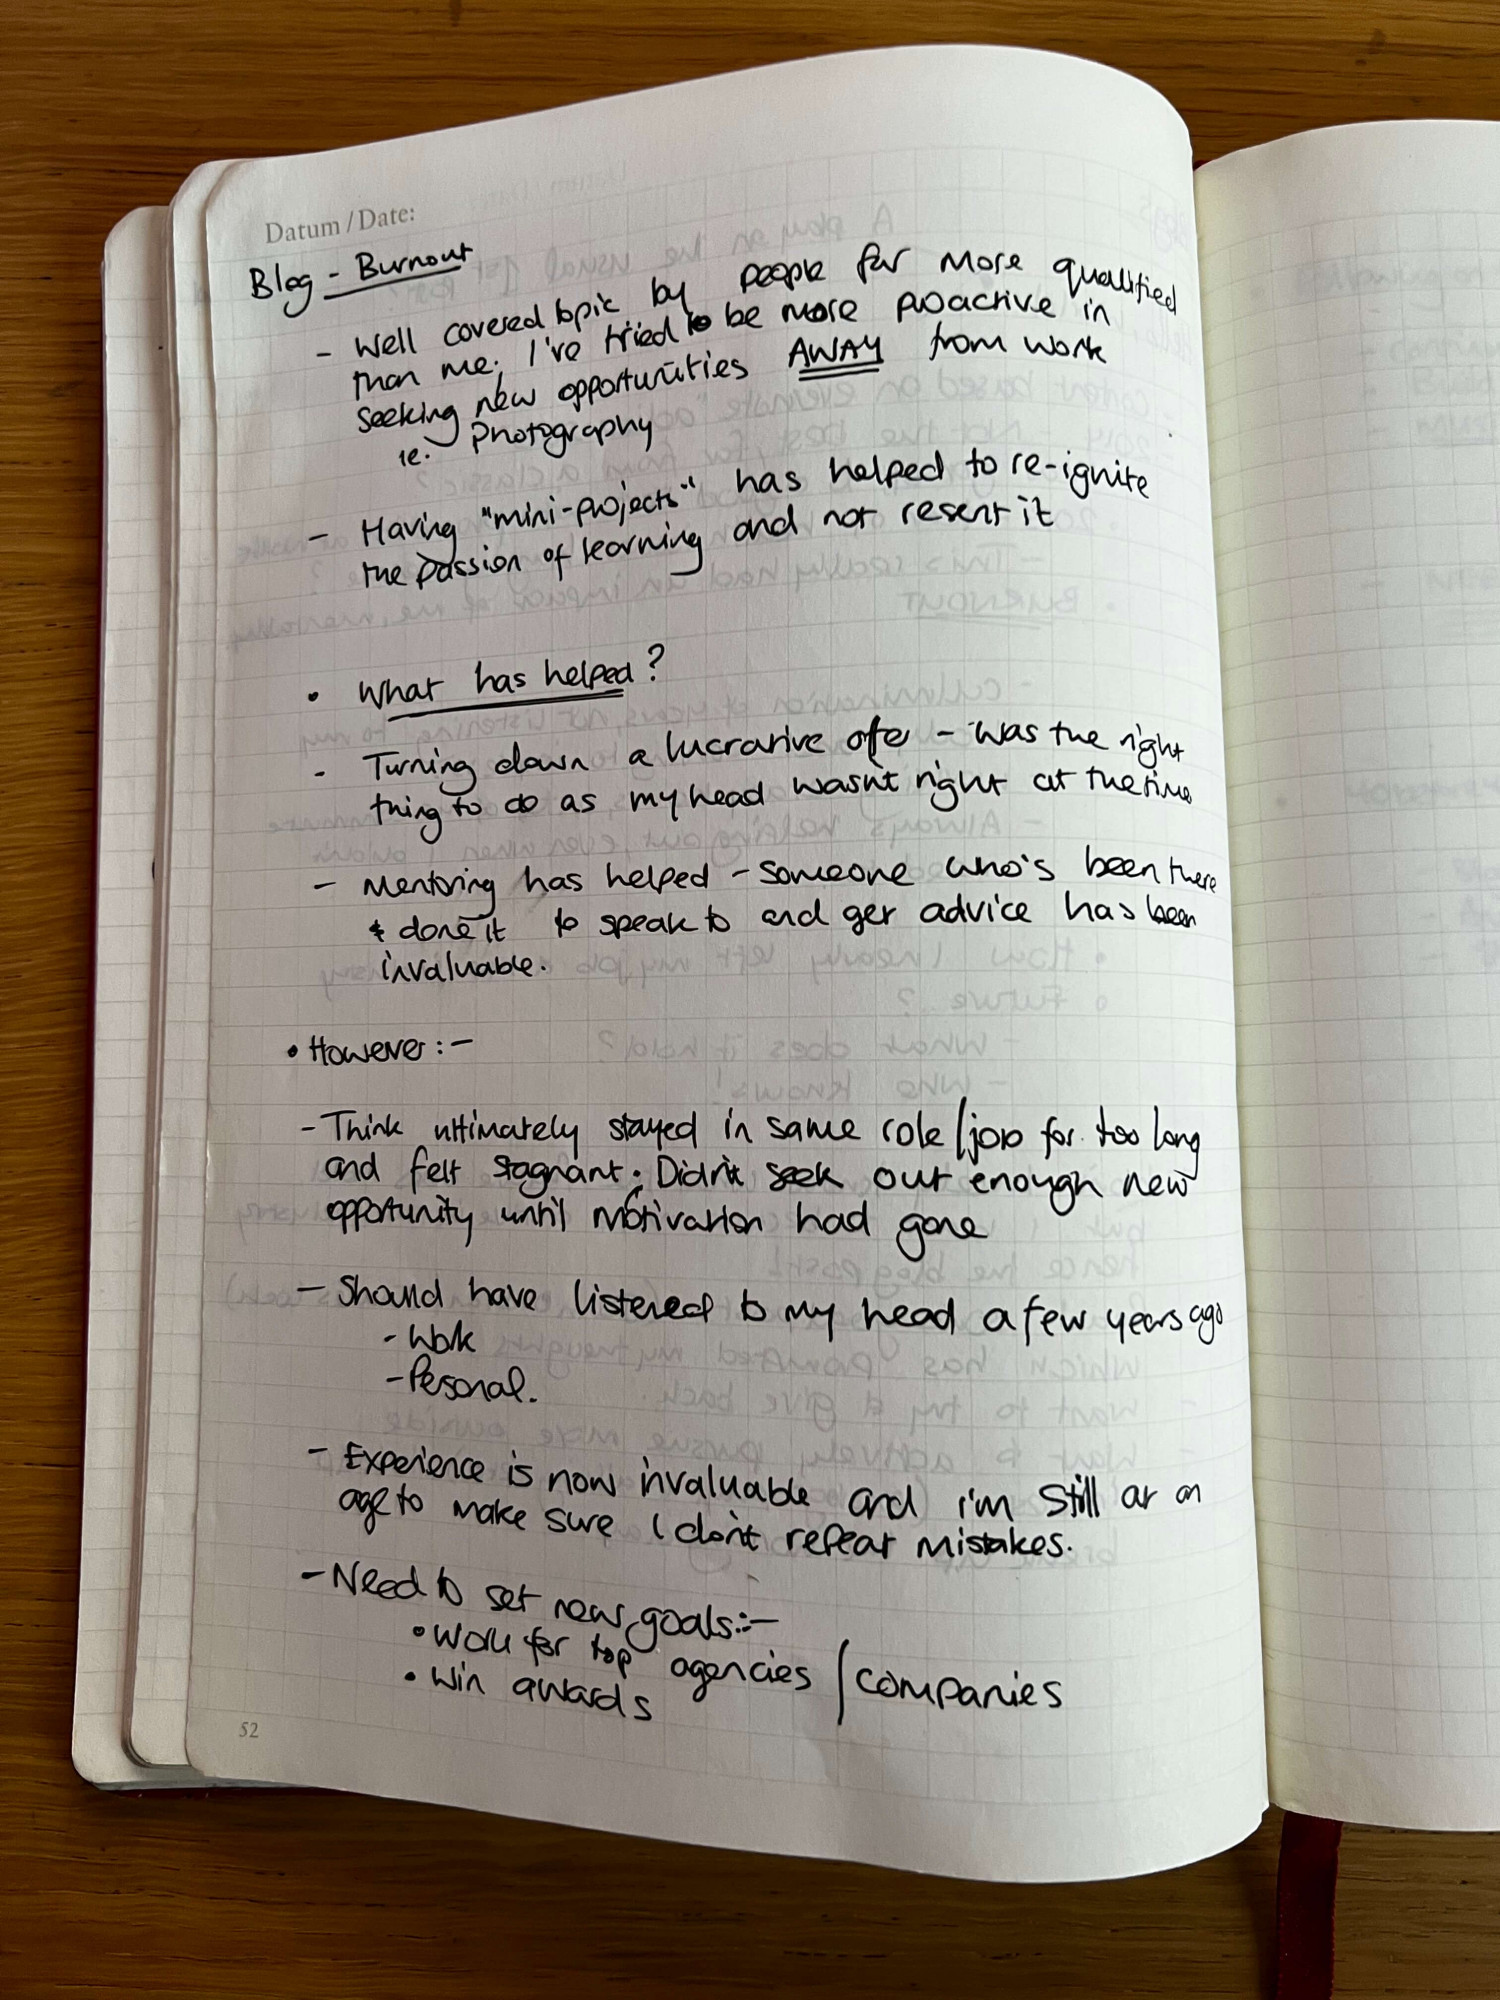 Datum / Date:
Blog - Burnout
- Well covered topic by people far more qualified
than me; I've tried to be more proactive in
seeking new opportunities AWAY from work
ie. Photography
- Having "mini-projects" has helped to re-ignite
the passion of learning and not resent it
• What has helped?
- Turning down a lucrative offe - was the right
thing to do as my head wasn't right at the time
- Mentoring has helped - someone who's been there
& done it to speak to and get advice has been
invaluable.
• However:-
- Think ultimately stayed in same role/job for too long
and felt stagnant. Didn't seek out enough new
opportunity until motivation had gone
- Should have listened to my head a few years ago
- Work
- Personal.
- Experience is now invaluable and i'm still at an
age to make sure I don't repeat mistakes.
- Need to set new goals:-
• Work for top agencies / companies
• Win awards
52